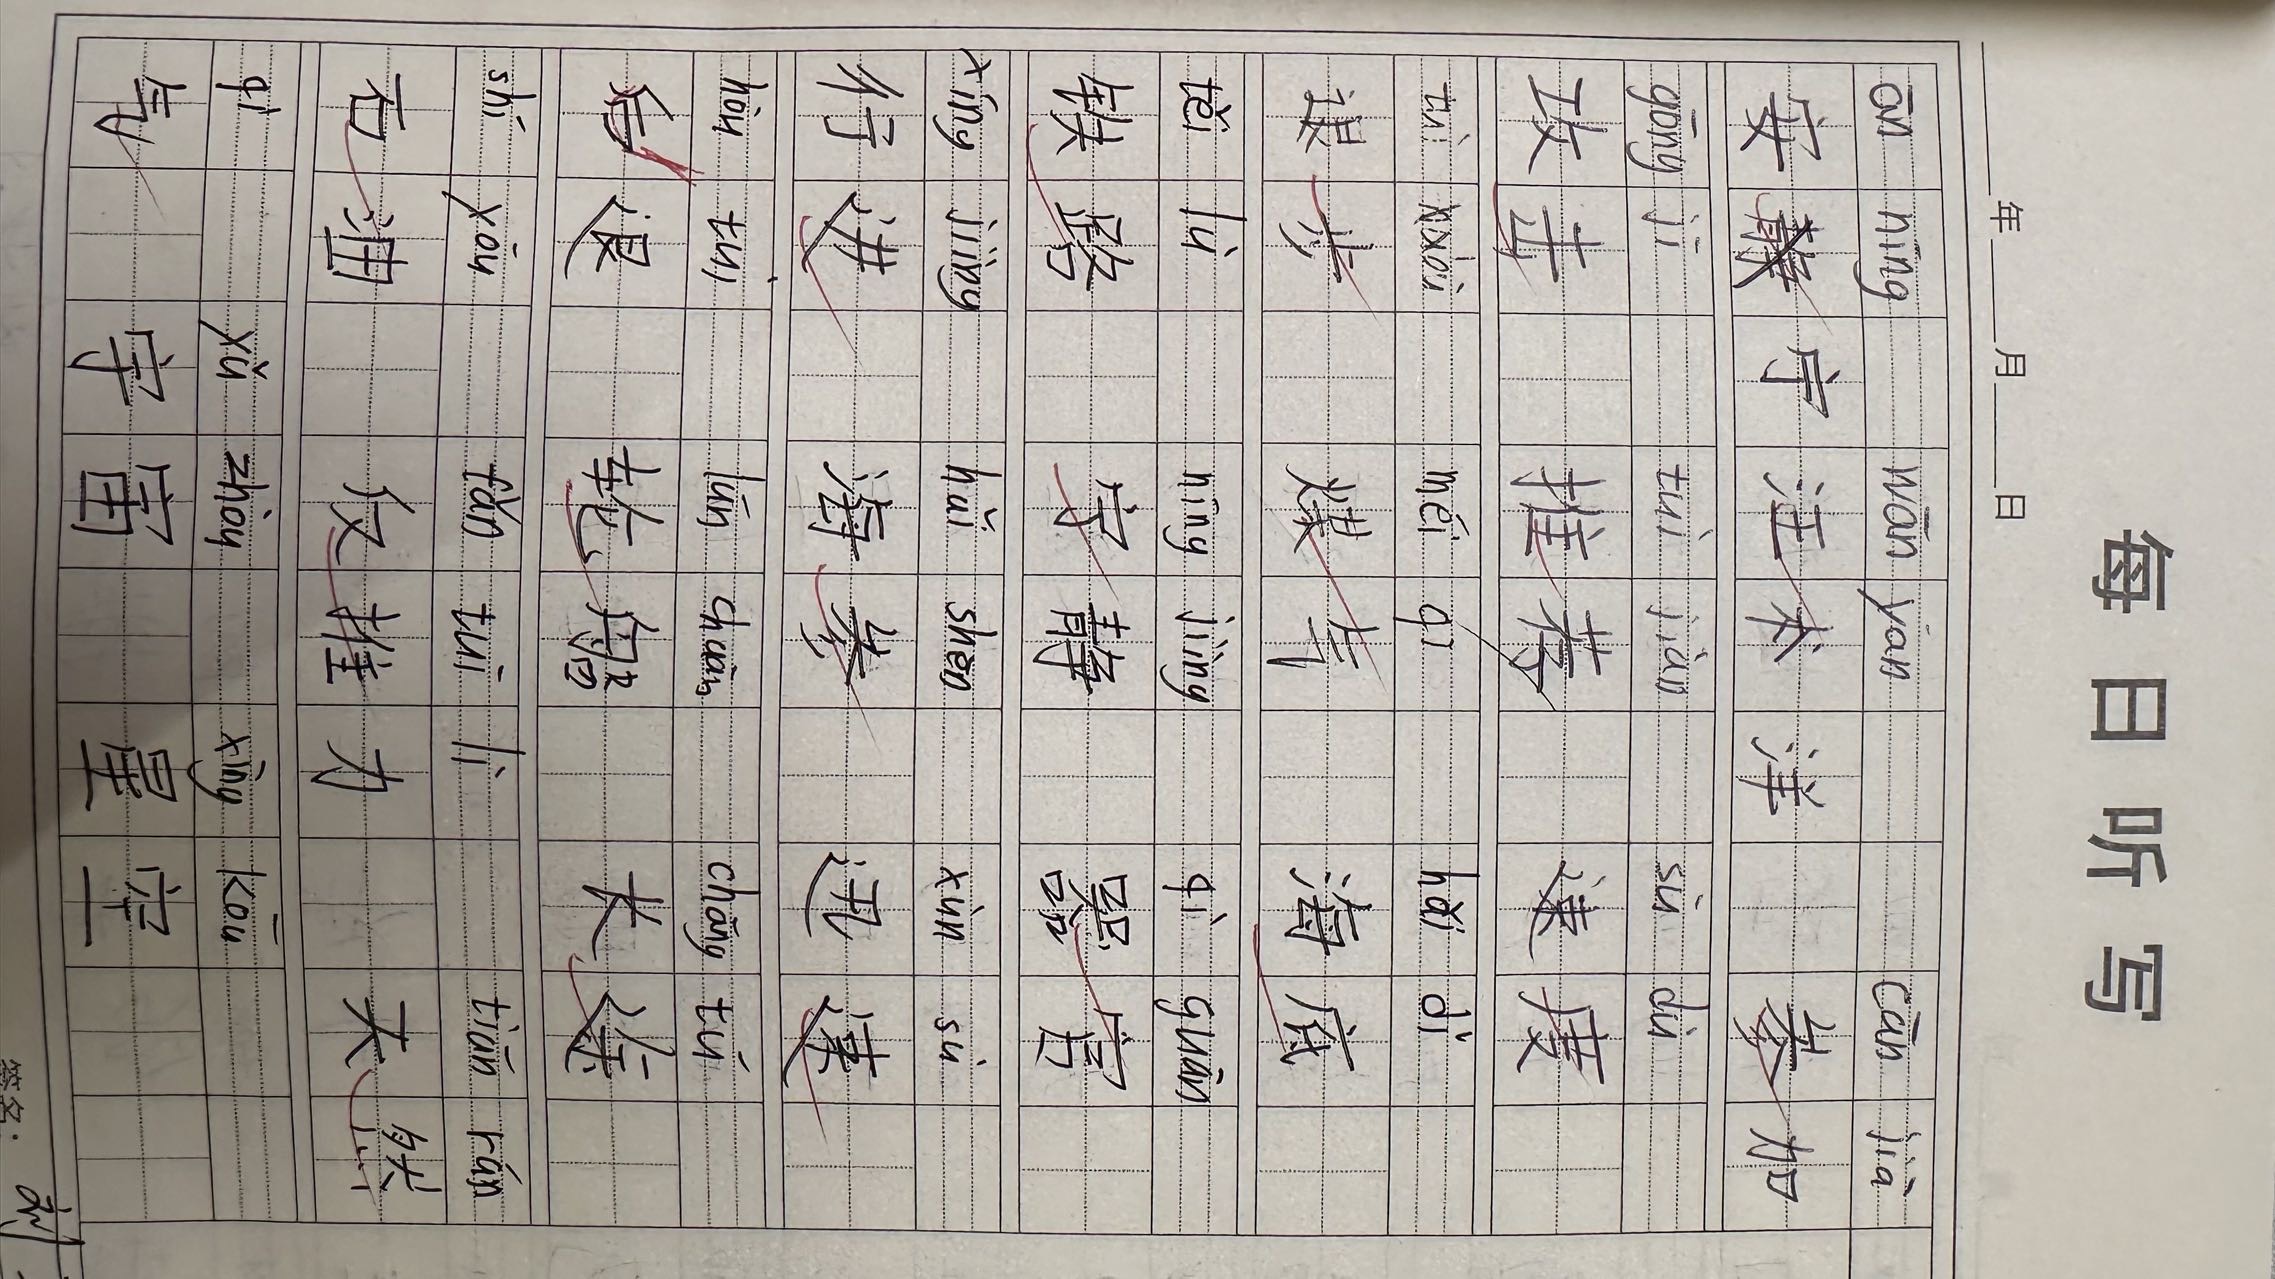 每日听写
年 月 日
ān níng wān yán cān jiā
安 宁 汪 洋 参 加
gōng jī tuī jiàn sù dù
攻 击 推 荐 速 度
tuì méi qì hǎi dǐ
步 煤 气 海 底
těi lù níng jìng qì guān
铁 路 宁 静 器 官
xíng jìng hǎi shēn xùn sù
行 进 海 参 迅 速
hòu tuì lún chuán cháng tú
后 退 轮 船 长 途
shí yóu fǎn tuī lì tiān rán
石 油 反 推 力 天 然
qì yǔ zhòu xīng kōu
气 宇 宙 星 空
签名: